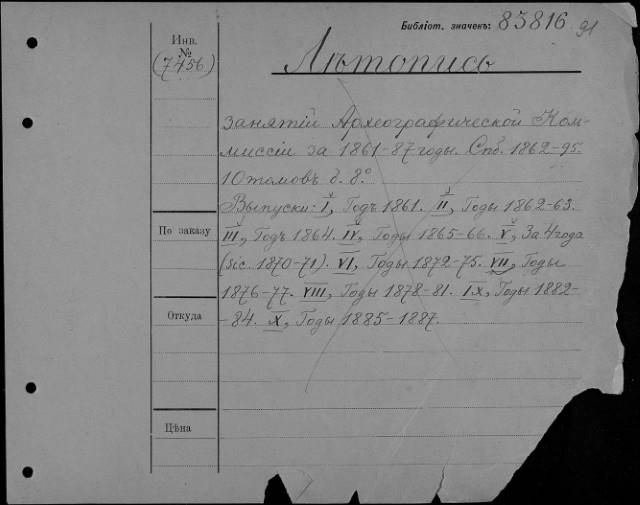 Библіот. значекъ: 83816 91
Инв. № (7456)
Лѣтопись
занятій Археографической Ком-
миссіи за 1861-87 годы. Спб. 1862-95.
10 томовъ б. 8°
Выпуски: I, Годъ 1861. II, Годы 1862-63.
III, Годъ 1864. IV, Годы 1865-66. V, За 4 года
(sic. 1870-71). VI, Годы 1872-75. VII, Годы
1876-77. VIII, Годы 1878-81. IX, Годы 1882-
-84. X, Годы 1885-1887.
По заказу
Откуда
Цѣна